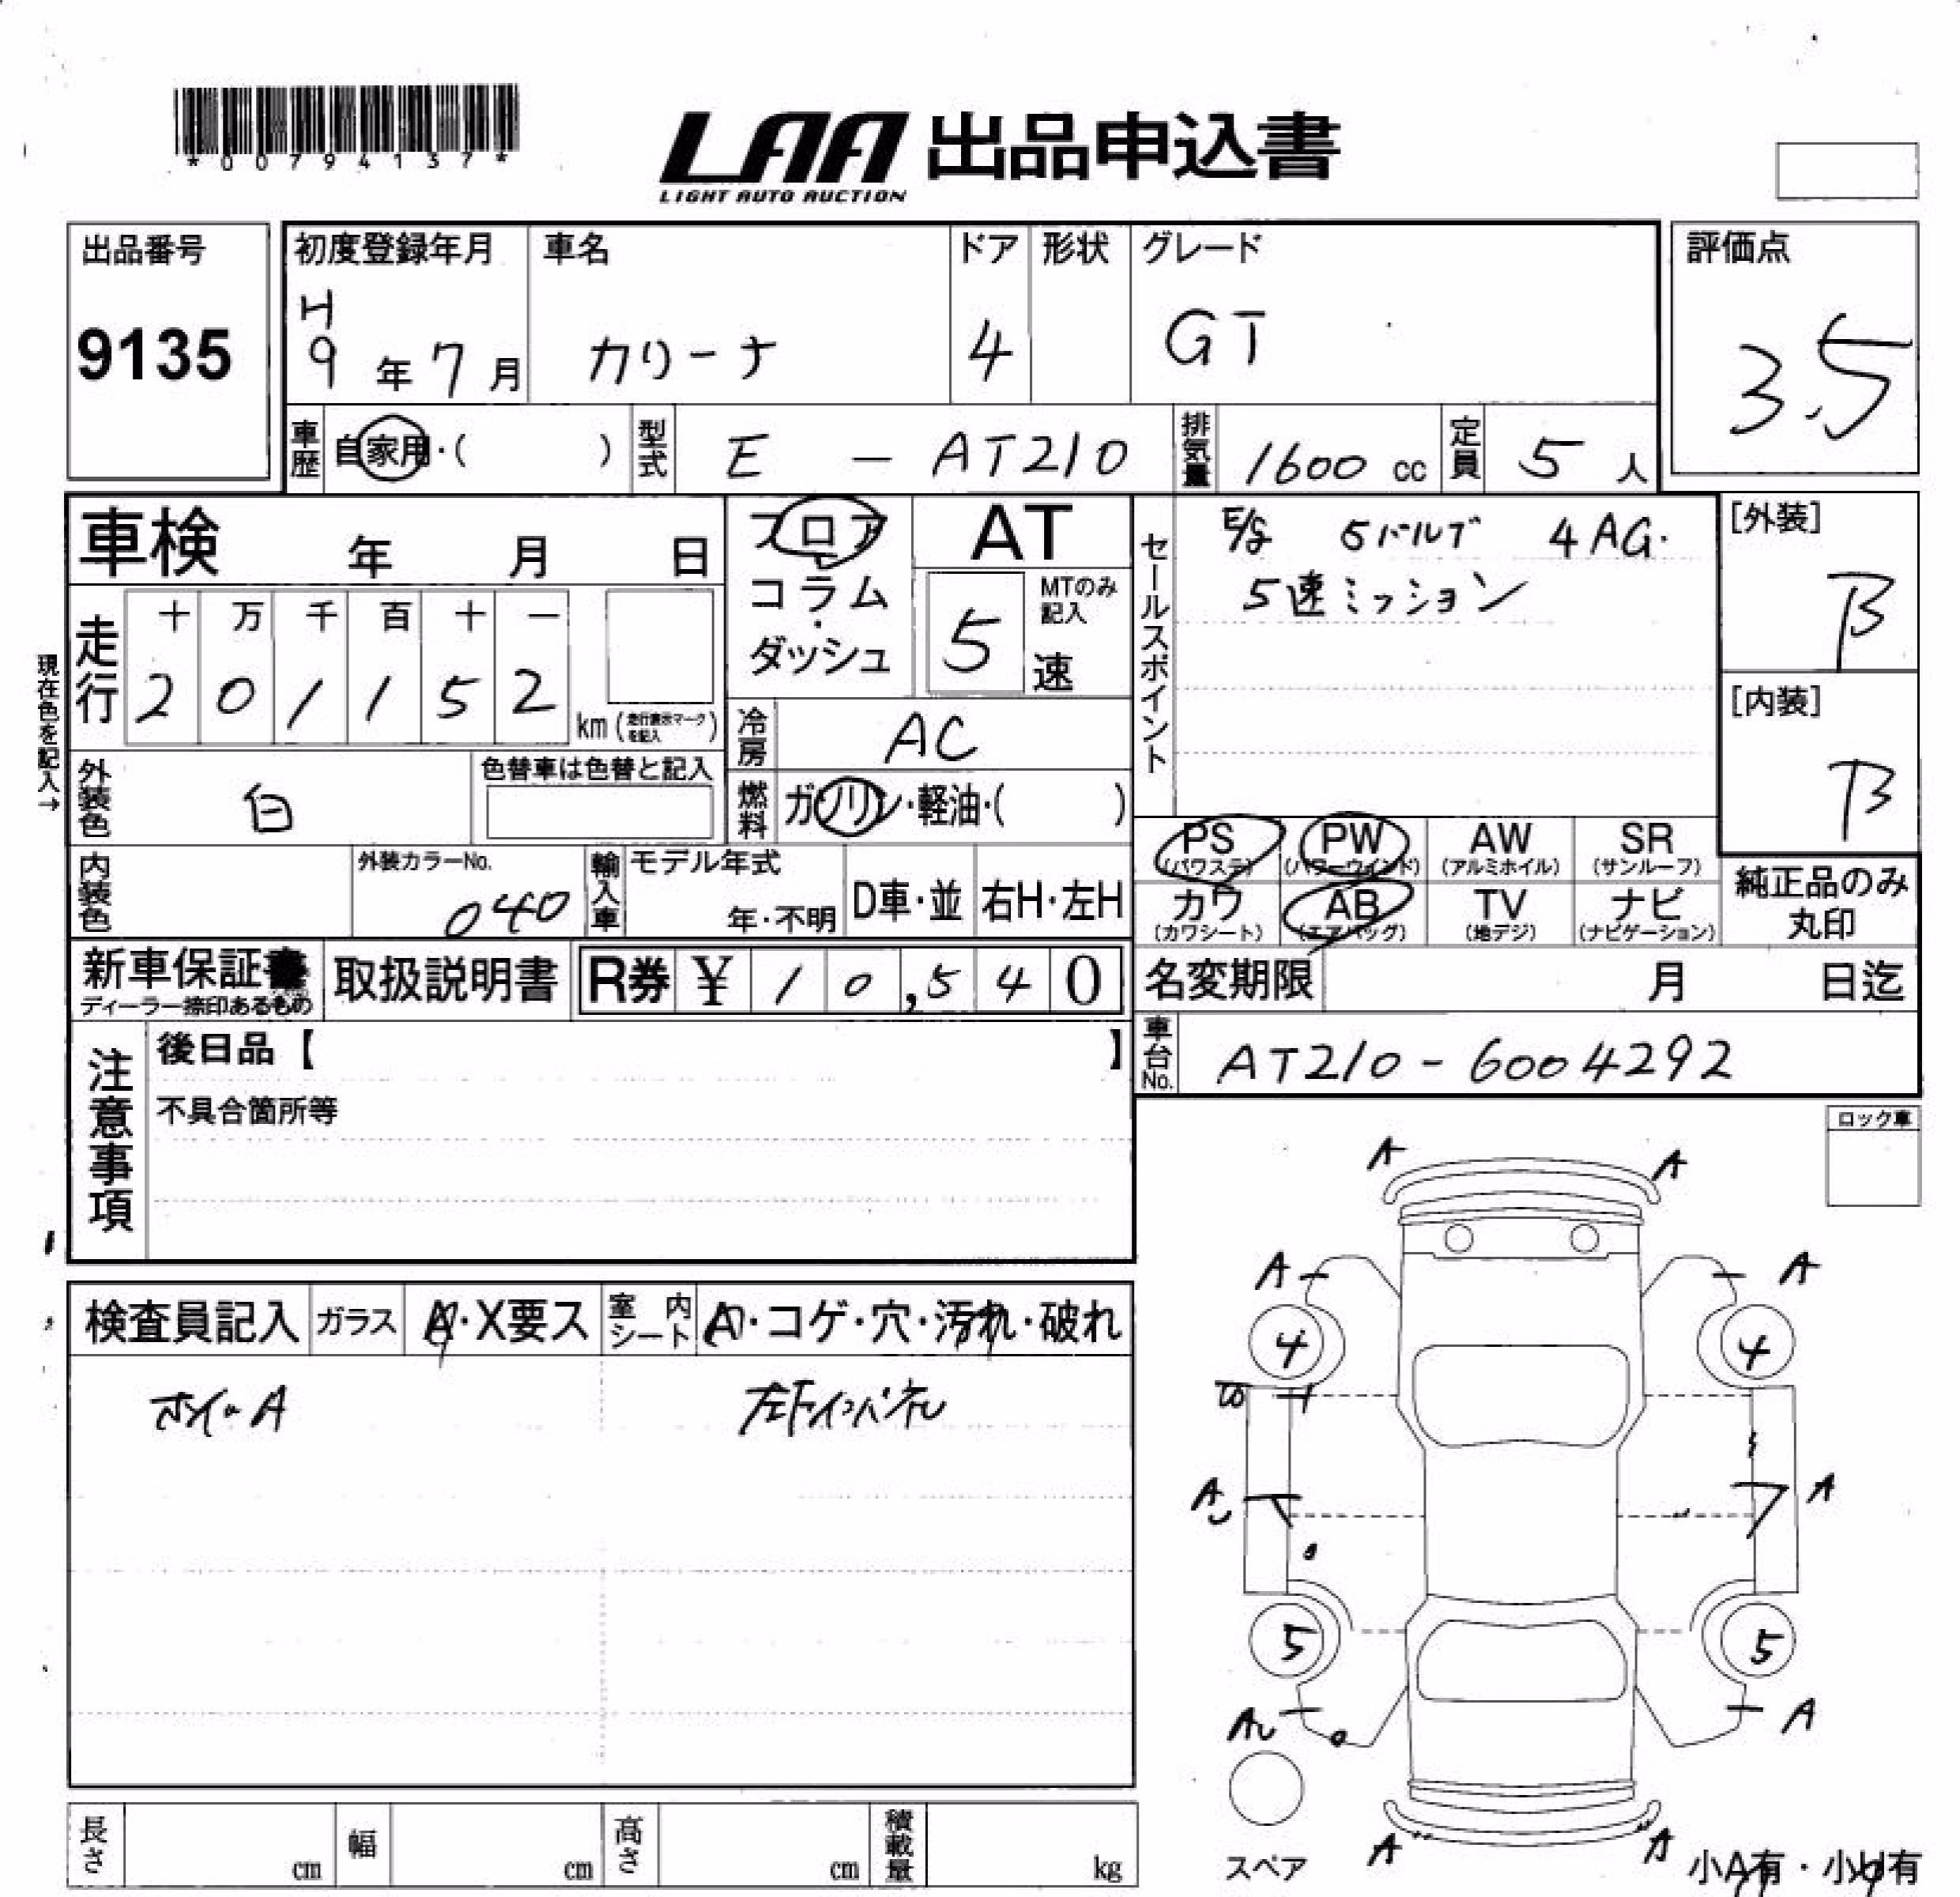 *00794137*
LAA 出品申込書
LIGHT AUTO AUCTION
出品番号
9135
初度登録年月 車名 ドア 形状 グレード
H 9 年 7 月 カリーナ 4 GT
評価点
3.5
車歴 自家用・( ) 型式 E - AT210 排気量 1600 cc 定員 5 人
車検 年 月 日
フロア
コラム
・
ダッシュ
AT
5 速
MTのみ記入
セールスポイント
E/g 5バルブ 4AG.
5速ミッション
[外装]
B
[内装]
B
現在色を記入→
走行
十 万 千 百 十 一
2 0 1 1 5 2 km (走行表示マークを記入)
冷房 AC
外装色 白 色替車は色替と記入
燃料 ガソリン・軽油・( )
PS (パワステ) PW (パワーウインド) AW (アルミホイル) SR (サンルーフ)
カワ (カワシート) AB (エアバッグ) TV (地デジ) ナビ (ナビゲーション)
純正品のみ
丸印
内装色 外装カラーNo. 040 輸入車 モデル年式 年・不明 D車・並 右H・左H
新車保証書
ディーラー捺印あるもの
取扱説明書 R券 ¥ 10,540
名変期限 月 日迄
車台No. AT210-6004292
注意事項
後日品【 】
不具合箇所等
ロック車
検査員記入 ガラス A・X要ス 室内シート A・コゲ・穴・汚れ・破れ
ホイールA
A A
A A
4 4
A
A
5 5
A
A A
スペア
小A有・小U有
長さ cm 幅 cm 高さ cm 積載量 kg